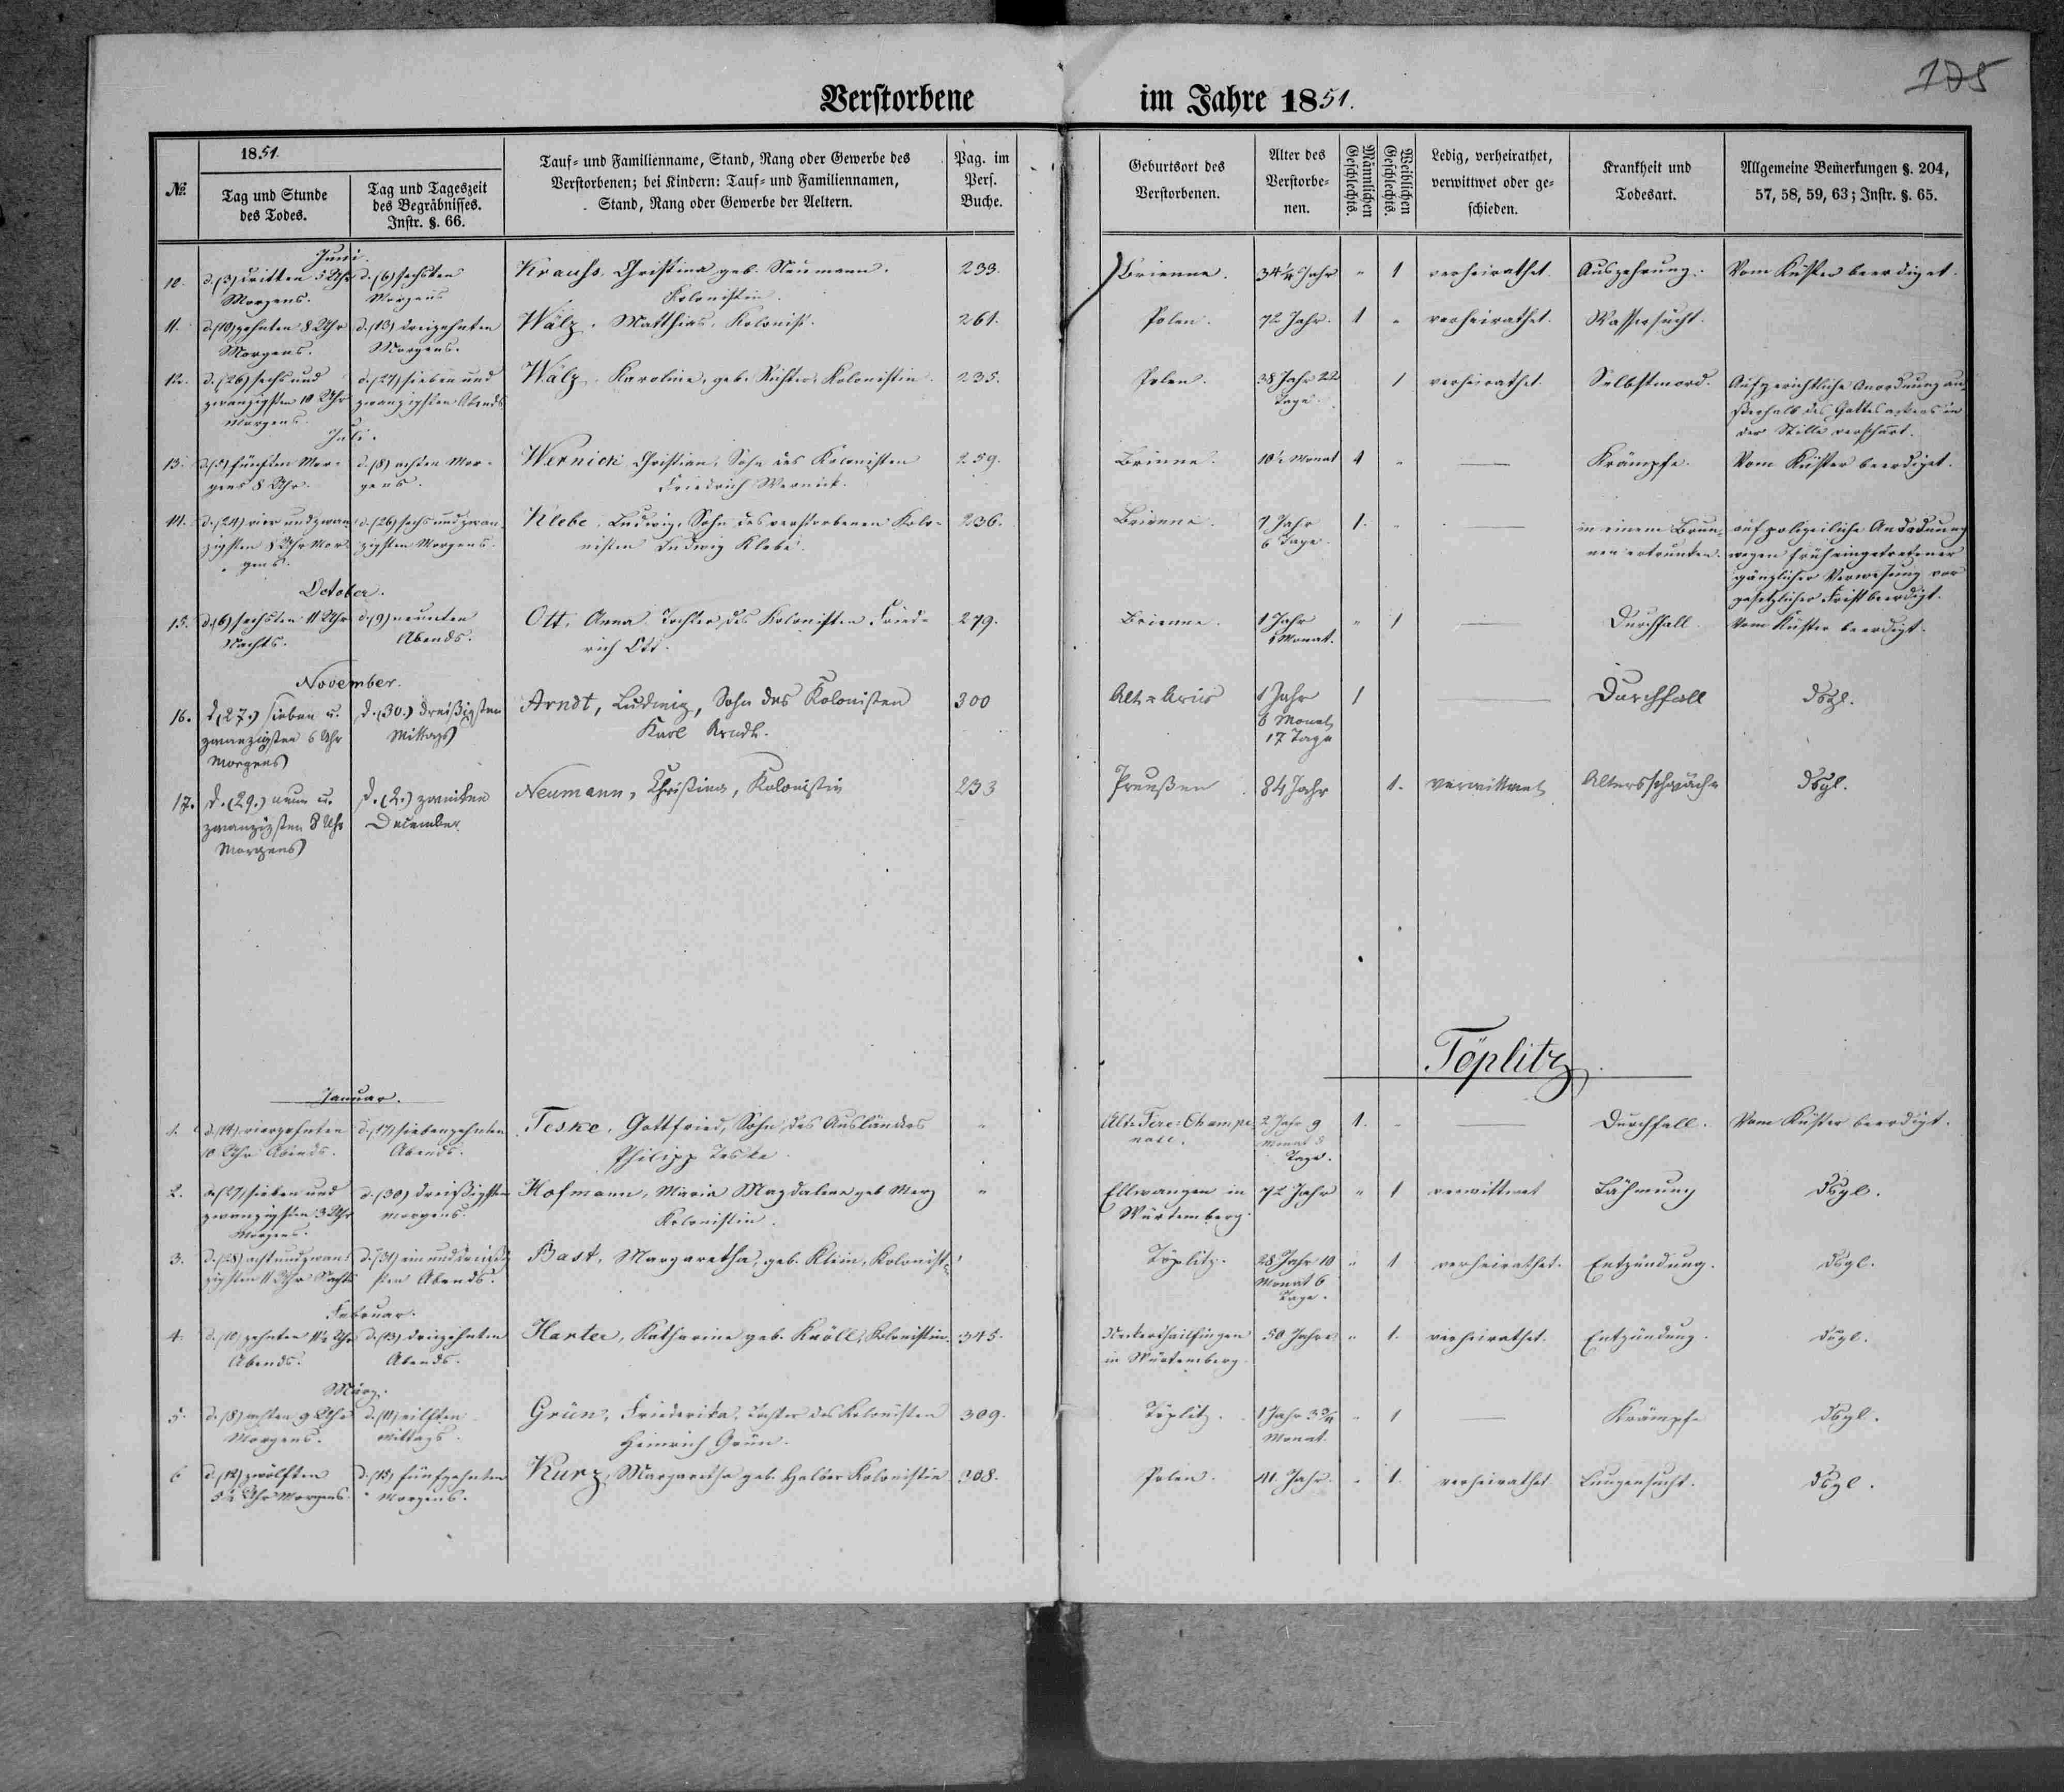 175
Verstorbene im Jahre 1851.
№.
1851.
Tag und Stunde des Todes.
Tag und Tageszeit des Begräbnisses. Instr. §. 66.
Tauf- und Familienname, Stand, Rang oder Gewerbe des Verstorbenen; bei Kindern: Tauf- und Familiennamen, Stand, Rang oder Gewerbe der Aeltern.
Pag. im Pers. Buche.
Geburtsort des Verstorbenen.
Alter des Verstorbenen.
Männlichen Geschlechts.
Weiblichen Geschlechts.
Ledig, verheirathet, verwittwet oder geschieden.
Krankheit und Todesart.
Allgemeine Bemerkungen §. 204, 57, 58, 59, 63; Instr. §. 65.
Juni.
10. d. (3) dritten 5 Uhr Morgens. d. (6) sechsten Morgens Krauss, Christina geb. Neumann. Kolonistin. 233. Brienne. 34 1/4 Jahr " 1 verheirathet. Auszehrung. Vom Küster beerdiget.
11. d. (10) zehnten 8 Uhr Morgens. d. (13) dreizehnten Morgens. Wälz, Matthias, Kolonist. 261. Polen. 72 Jahr. 1 " verheirathet. Wassersucht.
12. d. (26) sechs und zwanzigsten 10 Uhr Morgens. d. (27) sieben und zwanzigsten Abends Wälz, Karoline, geb. Richter, Kolonistin. 235. Polen. 38 Jahr 22 Tage. 1 verheirathet. Selbstmord. Auf gerichtliche Anordnung außerhalb des Gottesackers in der Stille verscharrt.
Juli.
13. d. (5) fünften Morgens 8 Uhr. d. (8) achten Morgens. Wernick, Christian, Sohn des Kolonisten Friedrich Wernick. 259. Brienne. 10 1/2 Monat 1 " — Krämpfe. Vom Küster beerdiget.
14. d. (24) vier und zwanzigsten 8 Uhr Morgens. d. (26) sechs und zwanzigsten Morgens. Klebe, Ludwig, Sohn des verstorbenen Kolonisten Ludwig Klebe. 236. Brienne. 7 Jahr 6 Tage. 1. — in einem Brunnen ertrunken. auf polizeiliche Anordnung wegen früh eingetretener gänzlicher Verwesung vor gesetzlicher Frist beerdigt.
October.
15. d. (6) sechsten 11 Uhr Nachts. d. (9) neunten Abends. Ott, Anna, Tochter des Kolonisten Friedrich Ott. 279. Brienne. 1 Jahr 1 Monat. " 1 — Durchfall. Vom Küster beerdigt.
November.
16. d. (27.) sieben u. zwanzigsten 6 Uhr Morgens d. (30.) dreißigsten Mittags Arndt, Ludwig, Sohn des Kolonisten Karl Arndt. 300 Alt-Arcis 1 Jahr 8 Monat 17 Tage 1 — Durchfall dsgl.
17. d. (29.) neun u. zwanzigsten 8 Uhr Morgens d. (2.) zweiten December Neumann, Christina, Kolonistin 233 Preußen 84 Jahr 1. verwittwet Altersschwäche dsgl.
Töplitz.
Januar.
1. d. (14) vierzehnten 10 Uhr Abends. d. (17) siebenzehnten Abends. Teske, Gottfried, Sohn des Ausländers Philipp Teske. " Alt-Fere-Champenoise. 2 Jahr 9 Monat 8 Tage. 1. — Durchfall. Vom Küster beerdigt.
2. d. (27) sieben und zwanzigsten 3 Uhr Morgens. d. (30) dreißigsten Morgens. Hofmann, Maria Magdalena geb. Merz Kolonistin. " Ellwangen in Würtemberg. 72 Jahr " 1 verwittwet Lähmung dsgl.
3. d. (28) acht und zwanzigsten 11 Uhr Nachts d. (31) ein und dreißigsten Abends. Bast, Margaretha, geb. Klein, Kolonist. Töplitz. 28 Jahr 10 Monat 6 Tage. " 1 verheirathet. Entzündung. dsgl.
Februar.
4. d. (10) zehnten 11 1/2 Uhr Abends. d. (13) dreizehnten Abends. Harter, Katharina geb. Kröll, Kolonistin. 345. Neckarthailfingen in Würtemberg. 50 Jahre " 1. verheirathet. Entzündung. dsgl.
März.
5. d. (8) achten 9 Uhr Morgens. d. (11) eilften Mittags. Grün, Friederika, Tochter des Kolonisten Heinrich Grün. 309. Töplitz. 1 Jahr 3 3/4 Monat. " 1 — Krämpfe dsgl.
6 d. (12) zwölften 5 1/2 Uhr Morgens d. (15) fünfzehnten Morgens. Kurz, Margaretha geb. Kolonistin 308. Polen. 41 Jahr. " 1. verheirathet Lungensucht. dsgl.